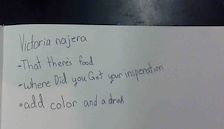 Victoria najera
-That there's food
-Where Did you Get your insperation
•add color and a drink